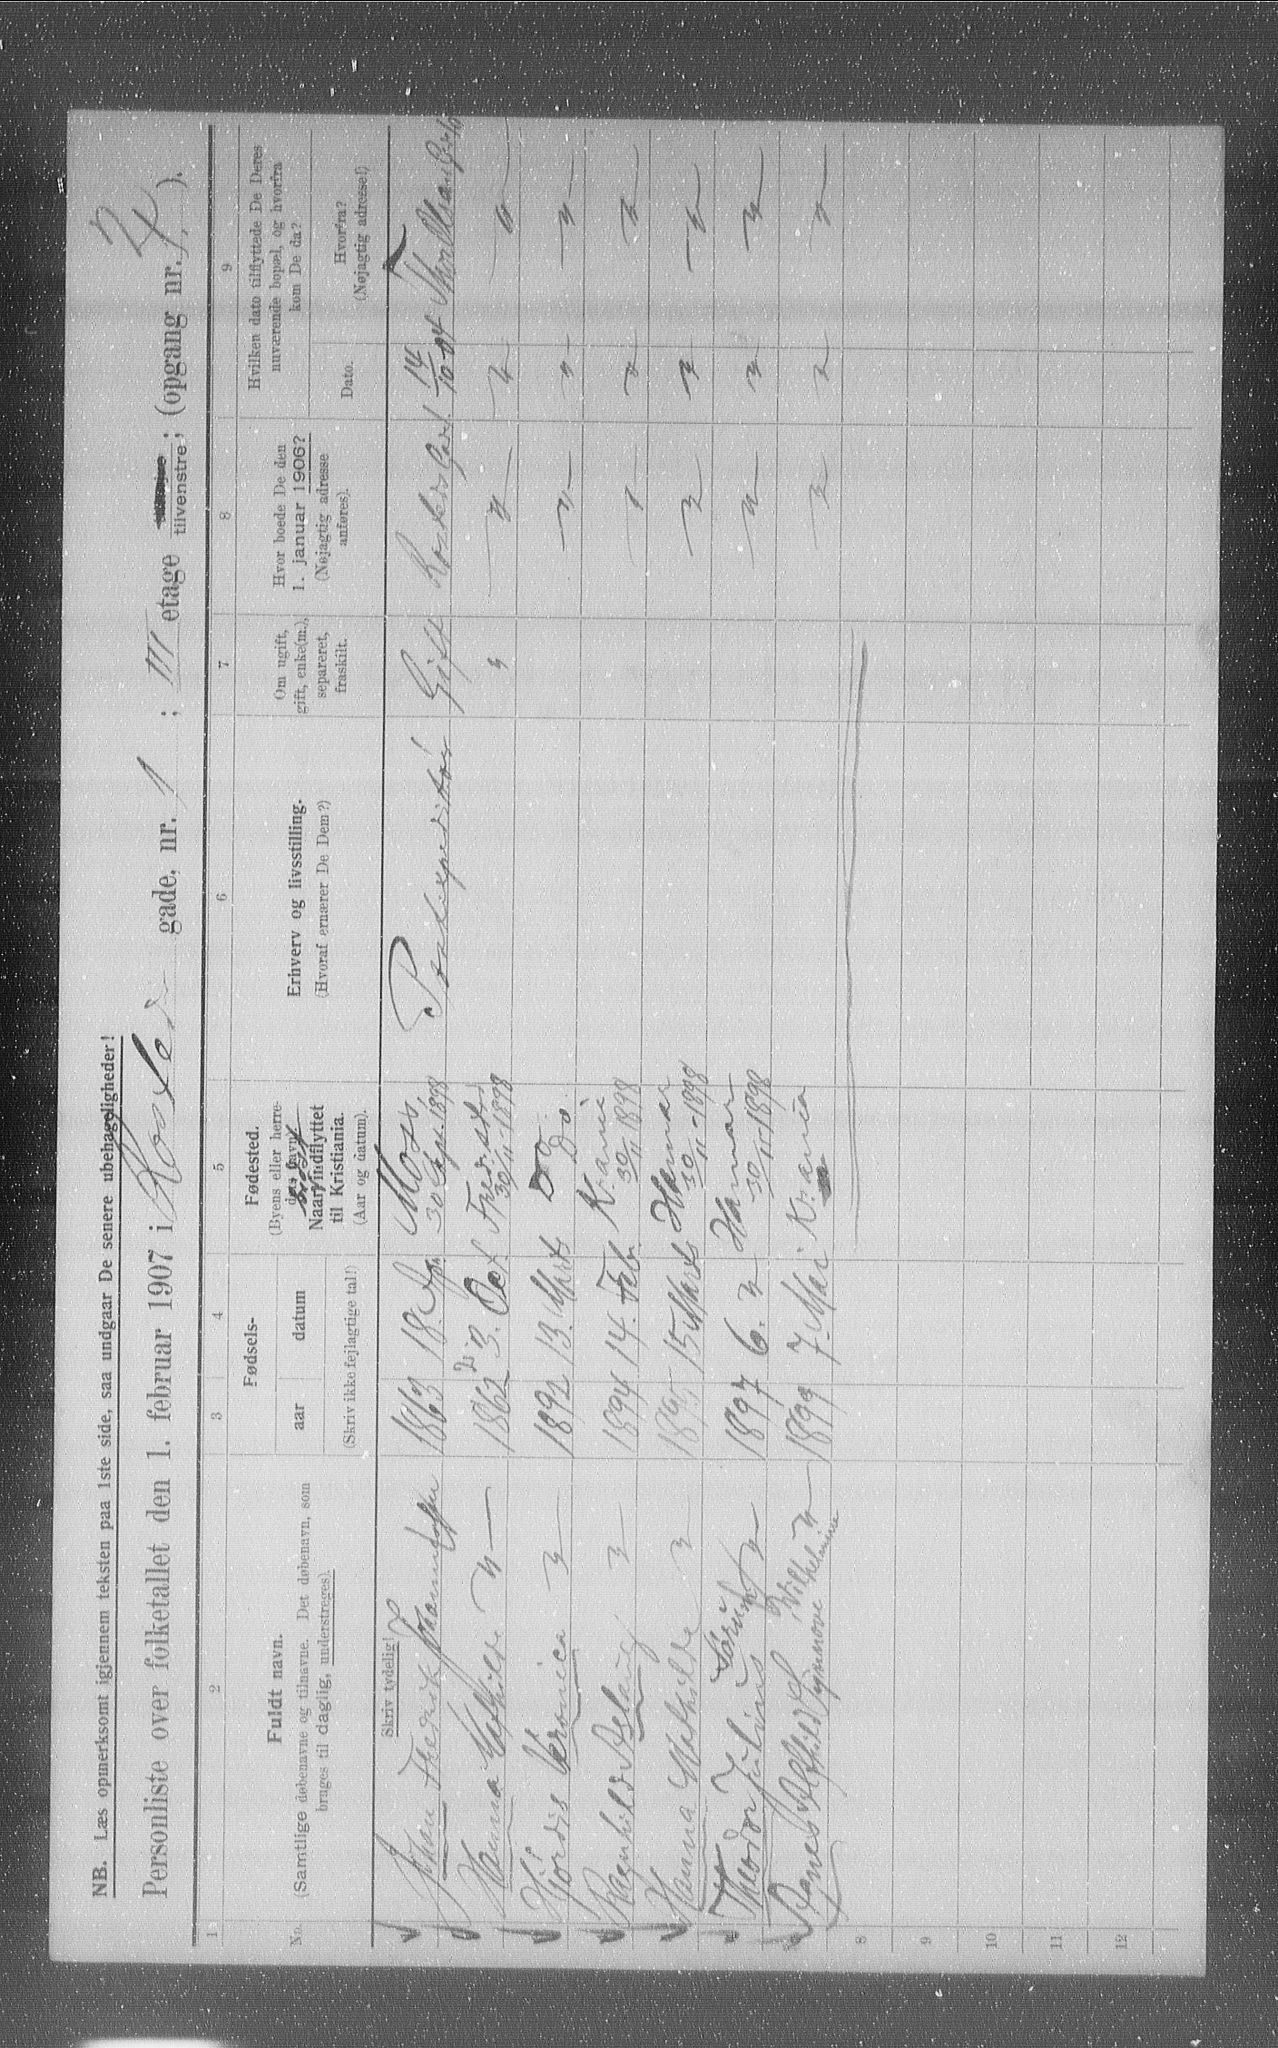 NB. Læs opmerksomt igjennem teksten paa 1ste side, saa undgaar De senere ubehageligheder!
Personliste over folketallet den 1. februar 1907 i Rosteds gade, nr. 1 ; III etage tilvenstre; (opgang nr. ).
1 2 3 4 5 6 7 8 9
No.
Fuldt navn.
(Samtlige døbenavne og tilnavne. Det døbenavn, som
bruges til daglig, understreges).
Fødsels-
aar datum
(Skriv ikke fejlagtige tal!)
Fødested.
(Byens eller herre-
dets navn).
Naar sidst indflyttet
til Kristiania.
(Aar og datum).
Erhverv og livsstilling.
(Hvoraf ernærer De Dem?)
Om ugift,
gift, enke(m.),
separeret,
fraskilt.
Hvor boede De den
1. januar 1906?
(Nøjagtig adresse
anføres).
Hvilken dato tilflyttede De Deres
nuværende bopæl, og hvorfra
kom De da?
Dato.
Hvorfra?
(Nøjagtig adresse!)
Skriv tydelig!
Johan Fredrik 1863 18. Moss, 30 1898 Gift 14/10 04
Hanna Mathilde " 1862 3. Oct. Fredrikst 30/11 1898 " " " "
Hjørdis Veronica " 1892 13. Marts Do Do. " " "
Ragnhild Aslaug " 1894 14. Febr. Krania 30/11 1898 " " "
Hanna Mathilde " 1895 15 Marts Hamar 30/11 - 1898 " " "
Theodor Julius " 1897 6. " Hamar 30/11 1898 " " "
Agnes Alfhild Synnøve Wilhelmine " 1899 7. Mai Krania " " "
8
9
10
11
12